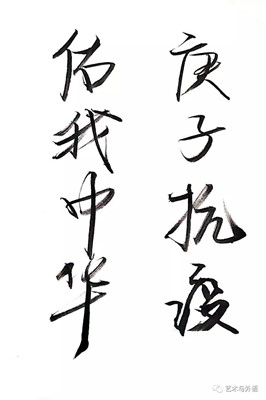 庚子抗疫
佑我中华
艺术与外语